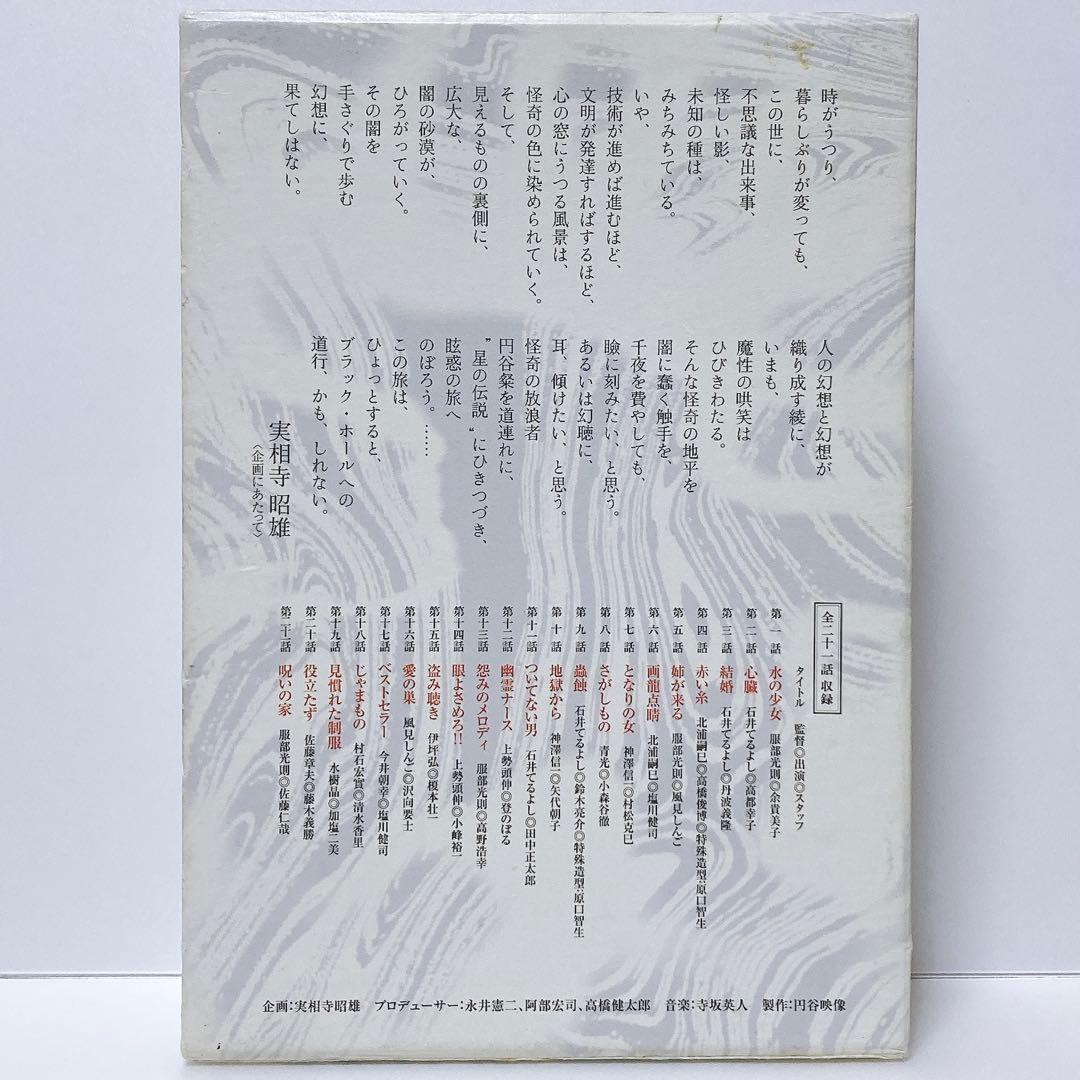 時がうつり、
暮らしぶりが変っても、
この世に、
不思議な出来事、
怪しい影、
未知の種は、
みちみちている。
いや、
技術が進めば進むほど、
文明が発達すればするほど、
心の窓にうつる風景は、
怪奇の色に染められていく。
そして、
見えるものの裏側に、
広大な、
闇の砂漠が、
ひろがっていく。
その闇を
手さぐりで歩む
幻想に、
果てしはない。
人の幻想と幻想が
織り成す綾に、
いまも、
魔性の哄笑は
ひびきわたる。
そんな怪奇の地平を
闇に蠢く触手を、
千夜を費やしても、
瞼に刻みたい、と思う。
あるいは幻聴に、
耳、傾けたい、と思う。
怪奇の放浪者
円谷粲を道連れに、
〝星の伝説〟にひきつづき、
眩惑の旅へ
のぼろう。……
この旅は、
ひょっとすると、
ブラック・ホールへの
道行、かも、しれない。
実相寺 昭雄
〈企画にあたって〉
全二十一話 収録
タイトル 監督◎出演◎スタッフ
第一話 水の少女 服部光則◎余貴美子
第二話 心臓 石井てるよし◎高都幸子
第三話 結婚 石井てるよし◎丹波義隆
第四話 赤い糸 北浦嗣巳◎高橋俊博◎特殊造型:原口智生
第五話 姉が来る 服部光則◎風見しんご
第六話 画龍点晴 北浦嗣巳◎塩川健司
第七話 となりの女 神澤信一◎村松克巳
第八話 さがしもの 青光◎小森谷徹
第九話 蟲蝕 石井てるよし◎鈴木亮介◎特殊造型:原口智生
第十話 地獄から 神澤信一◎矢代朝子
第十一話 ついてない男 石井てるよし◎田中正太郎
第十二話 幽霊ナース 上勢頭伸◎登のぼる
第十三話 怨みのメロディ 服部光則◎高野浩幸
第十四話 眼よさめろ!! 上勢頭伸◎小峰裕一
第十五話 盗み聴き 伊坪弘◎榎本壮一
第十六話 愛の巣 風見しんご◎沢向要士
第十七話 ベストセラー 今井朝幸◎塩川健司
第十八話 じゃまもの 村石宏實◎清水香里
第十九話 見慣れた制服 水樹晶◎加塩二美
第二十話 役立たず 佐藤章夫◎藤木義勝
第二十一話 呪いの家 服部光則◎佐藤仁哉
企画:実相寺昭雄 プロデューサー:永井憲二、阿部宏司、高橋健太郎 音楽:寺坂英人 製作:円谷映像